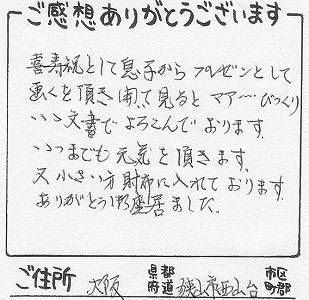 ご感想ありがとうございます
喜寿祝として息子からプレゼントとして
を頂き開て見るとマアーびっくり
いい文書でよろこんでおります
いつまでも元気を頂きます
又小さい方財布に入れております
ありがとう御座居ました
ご住所 大阪 都道府県 市 西山台 市区町郡